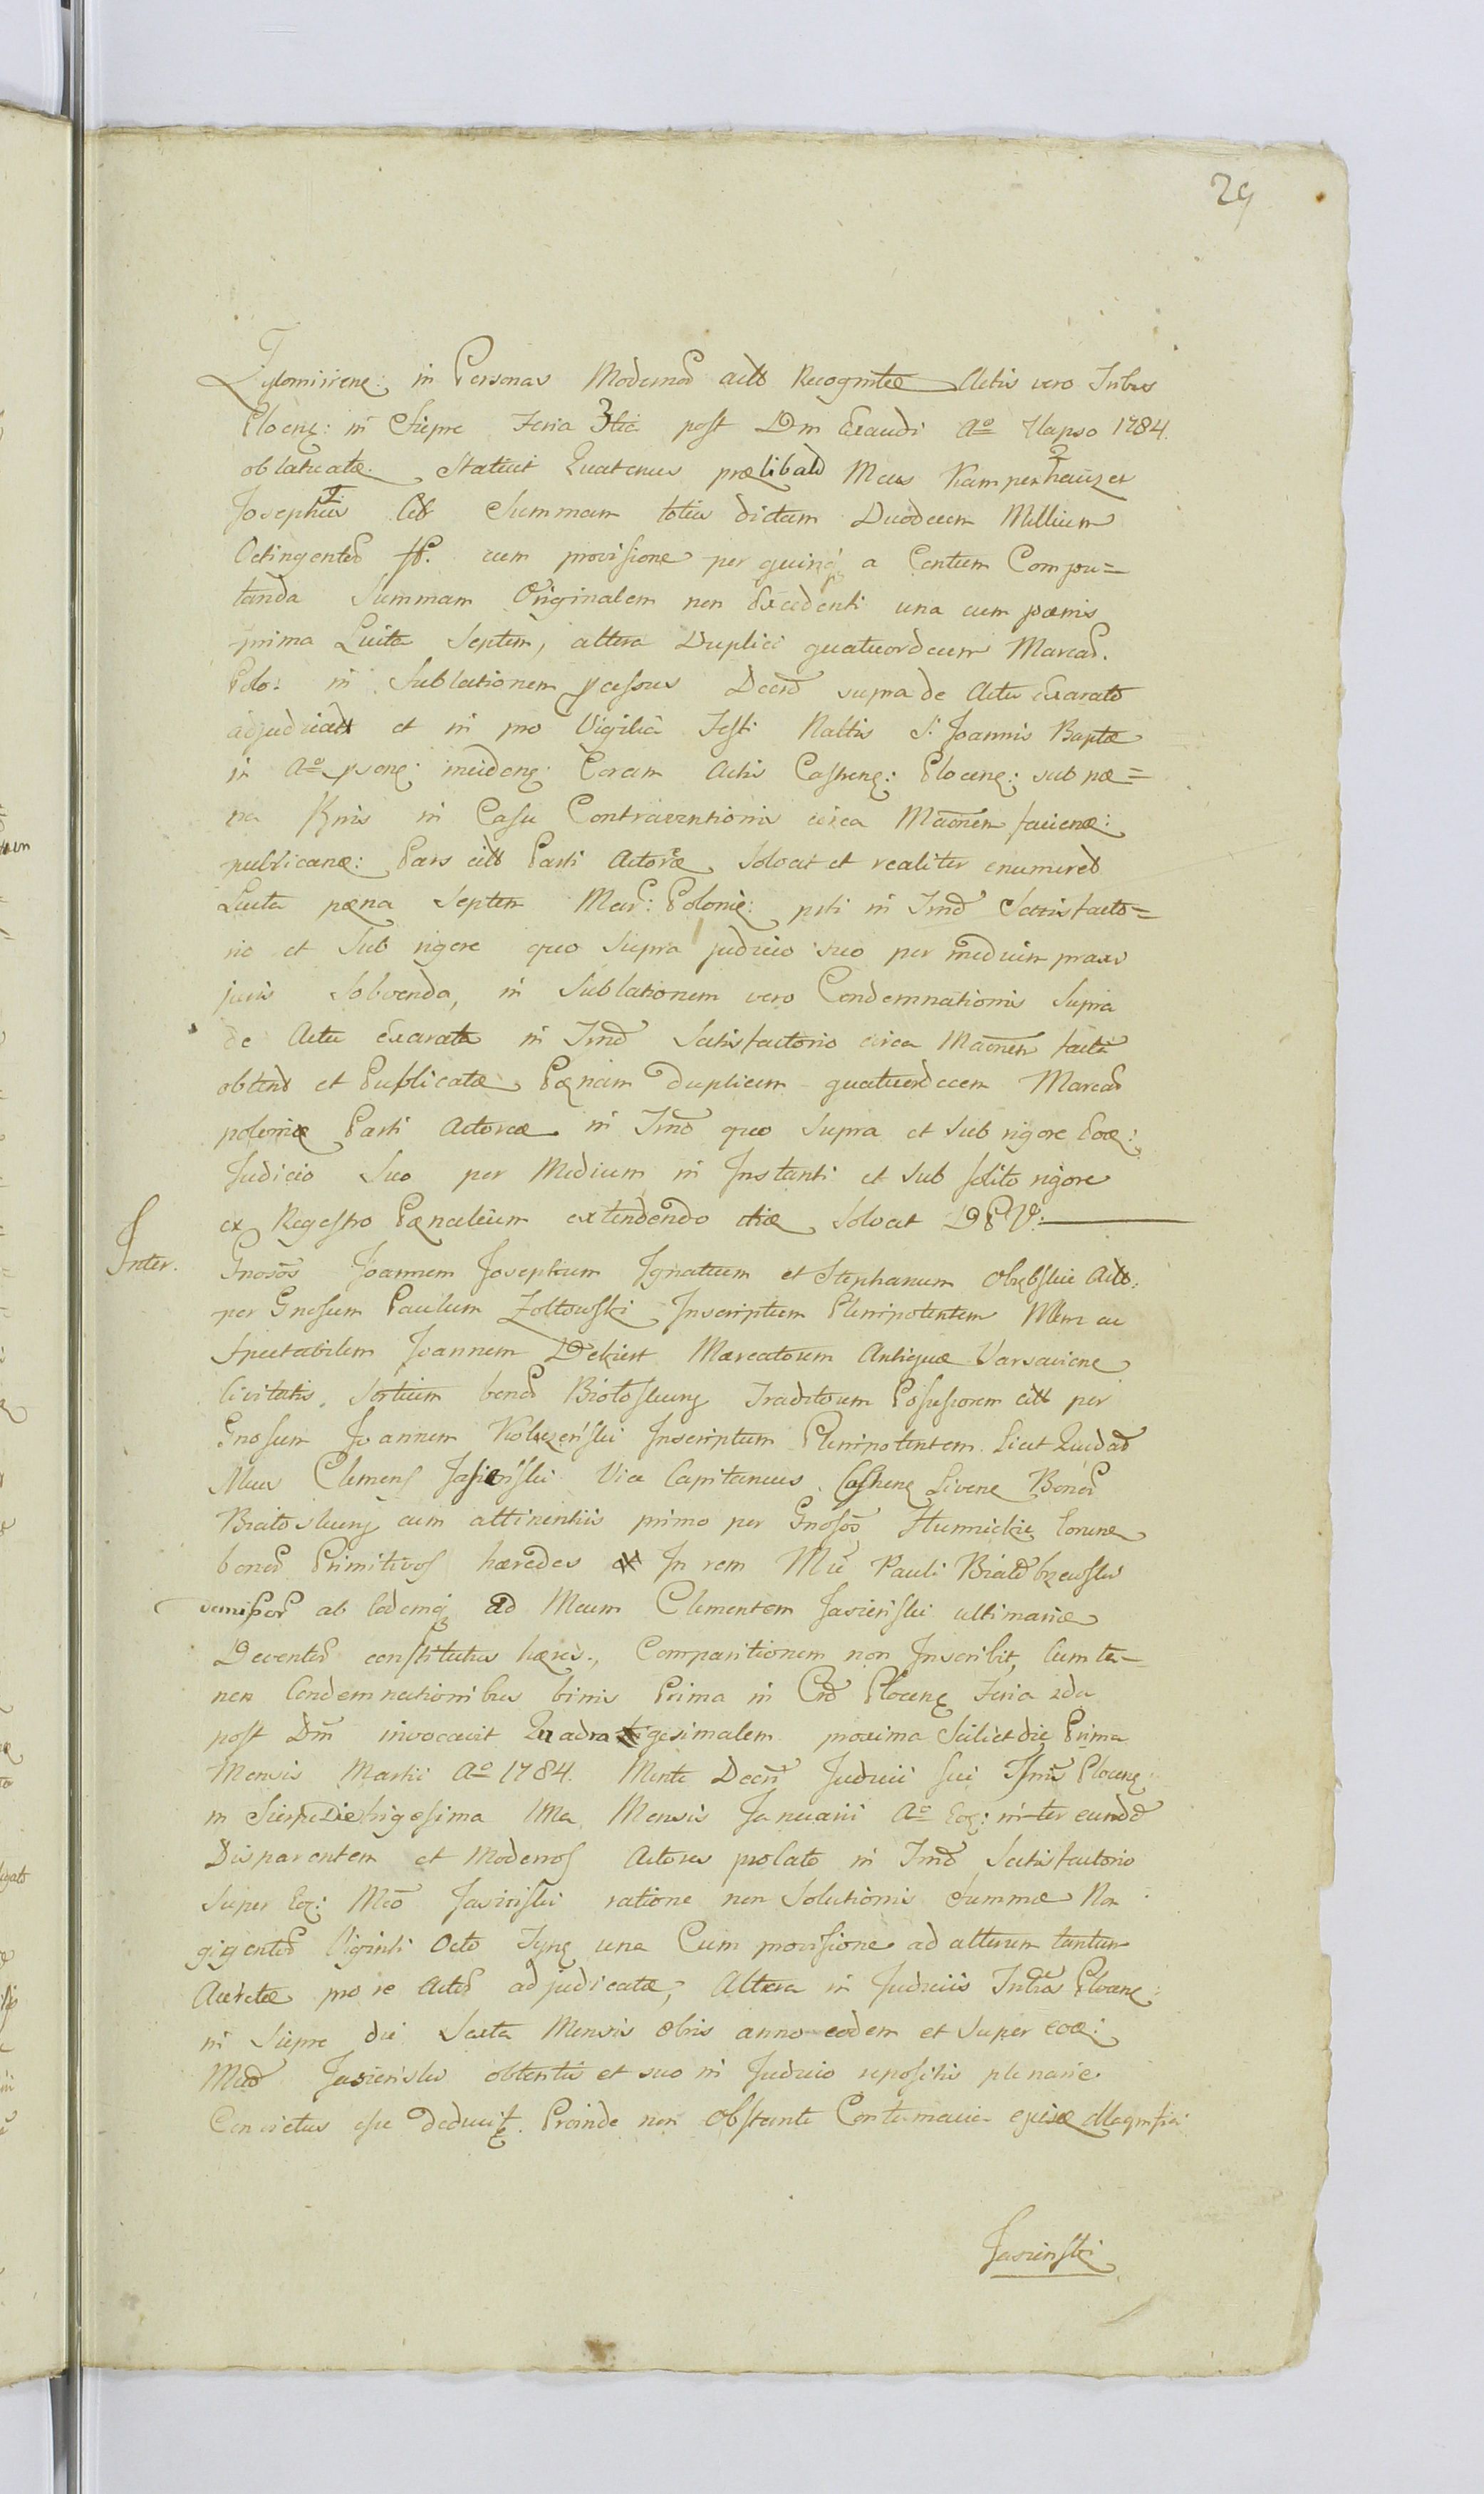 29
Zytomirieng: in Personas Modernoꝝ actto Recognitæ Actis vero Tribus
Ploceng: in Sieprc Feria 3tia post Dm Exaudi Ao Elapso 1784.
oblaticatæ. Statuit Quatenus prælibato Mcus Kampenhauzer
Josephus Citt Summam totius dictam Duodecim Millium
Octingentoꝝ fP. cum provisione per quinq a Centum Compu=
tanda Summam Originalem non Excedenti una cum pœnis
prima Luita Septem, altera Duplici quatuordecem Marcaꝝ.
Polo: in Sublationem pcessus Decrd supra de Actu exarato
adjudicatt et in pro Vigilia Festi Naltis S. Joannis Baptæ
in Ao pseng: incideng: Coram Actis Castreng: Ploceng: sub pæ=
na in Casu Contraventionis circa Maonem faciend:
publicand: Pars citt Parti Actoræ, Solvat et realiter enumeret
Luita pæna Septem Mar: Polonic: pti in Tmo Satisfacto=
rio et Sub rigore quo Supra judicio suo per medium praxis
juris Solvenda, in Sublationem vero Condemnationis Supra
de Actu exarata in Tmo Satisfactorio circa Maonem facta
obtent et Publicatæ, Pænam duplicem quatuordecem Marcaꝝ
polonic Parti Actoreæ in Tmo quo Supra et Sub rigore Eoꝝ:
Judicio Suo per Medium in Instanti et Sub solito rigore
ex Regestro Pænalium extendendo Solvat D P V.
Inter. Gnosos Joannem Josephum Ignatium et Stephanum Obrębskie Actt:
per Gnosum Paulum Zołtowski Inscriptum Plenipotentem Mcm ac
Spectabilem Joannem Dekiert Mercatorem Antiquæ Varsaviene
Civitatis, Sortium bonoꝝ Białoskury Traditorum Possessorem citt per
Gnosum Joannem Inscriptum Plenipotentem. Licet Quidad
Mcus Clemens Jasieński Vice Capitaneus, Castreng Liveng Bonoꝝ
Białoskury cum attinentiis primo per Gnosos Humnickie eorund
bonoꝝ Primitivos hæredes In rem Mci Pauli Białobrzeskis
venisoꝝ ab Eodemq ad Mcum Clementem Jasieński ultimarie
Deventoꝝ constitutus hæres., Comparitionem non Inscribit, Cum ta=
men Condemnationibus binis Prima in Crd Ploceng Feria 2da
post Dm invocavit Quadragesimalem proxima Scilicet die Prima
Mensis Martii Ao 1784. Mente Decri Judicii sui Tfnis Ploceng
in Sierpc Die trigesima 1ma Mensis Januarii Ao Eoꝝ: inter eundꝝ
Disparentem et Modernos Actores prolato in Tmo Satisfactorio
Super Eoꝝ: Mco Jasieński ratione non Solutionis Summæ Non
gigentoꝝ Viginti Octo Tyng una Cum provisione ad alterum tantum
Acervatæ pro re Actoꝝ adjudicatæ, Altera in Judiciis Intris Ploceng:
in Siepre die Sexta Mensis obris anno eodem et Super eoꝝ:
Mco Jasienski obtentis et suo in Judicio repositis plenarie
Convictus esse Deducit. Proinde non Obstante Contumacia ejusd Magnifici
Jasieński